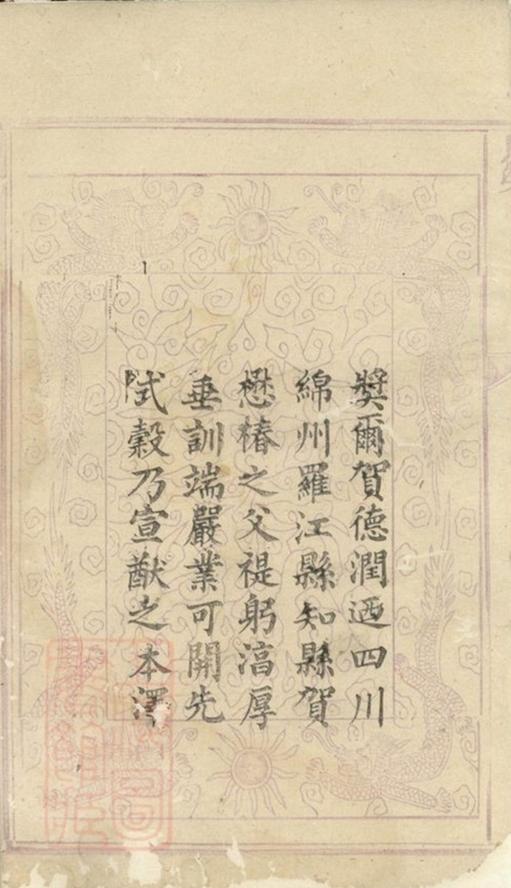 奬爾賀德潤迺四川
綿州羅江縣知縣賀
懋椿之父禔躬湻厚
垂訓端嚴業可開先
式穀乃宣猷之本澤